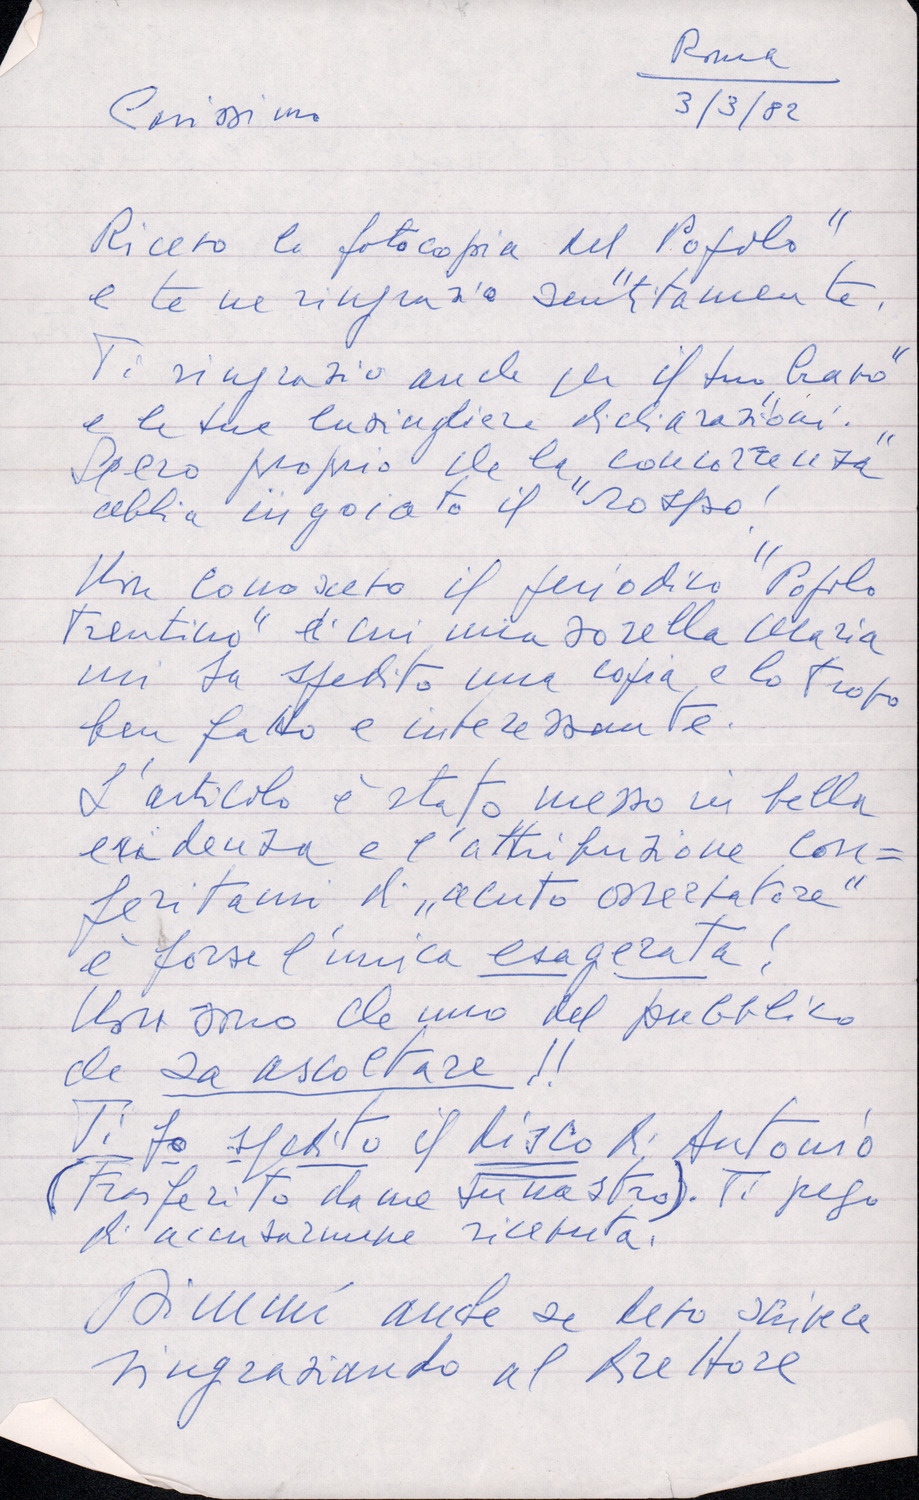 Roma
3/3/82
Carissimo
Ricevo la fotocopia del Popolo"
e te ne ringrazio sentitamente.
Ti ringrazio anche per il tuo "bravo"
e le tue lusinghiere dichiarazioni.
Spero proprio che la "concorrenza"
abbia ingoiato il "rospo!
Non conoscevo il periodico "Popolo
Trentino" di cui mia sorella Maria
mi ha spedito una copia e lo trovo
ben fatto e interessante.
L'articolo è stato messo in bella
evidenza e l'attribuzione con=
feritami di „acuto osservatore"
è forse l'unica esagerata!
Non sono che uno del pubblico
che sa ascoltare!!
Ti ho spedito il disco di Antonio
(Trasferito da me su nastro). Ti prego
di accusarmene ricevuta.
Dimmi anche se devo scrivere
ringraziando al Direttore